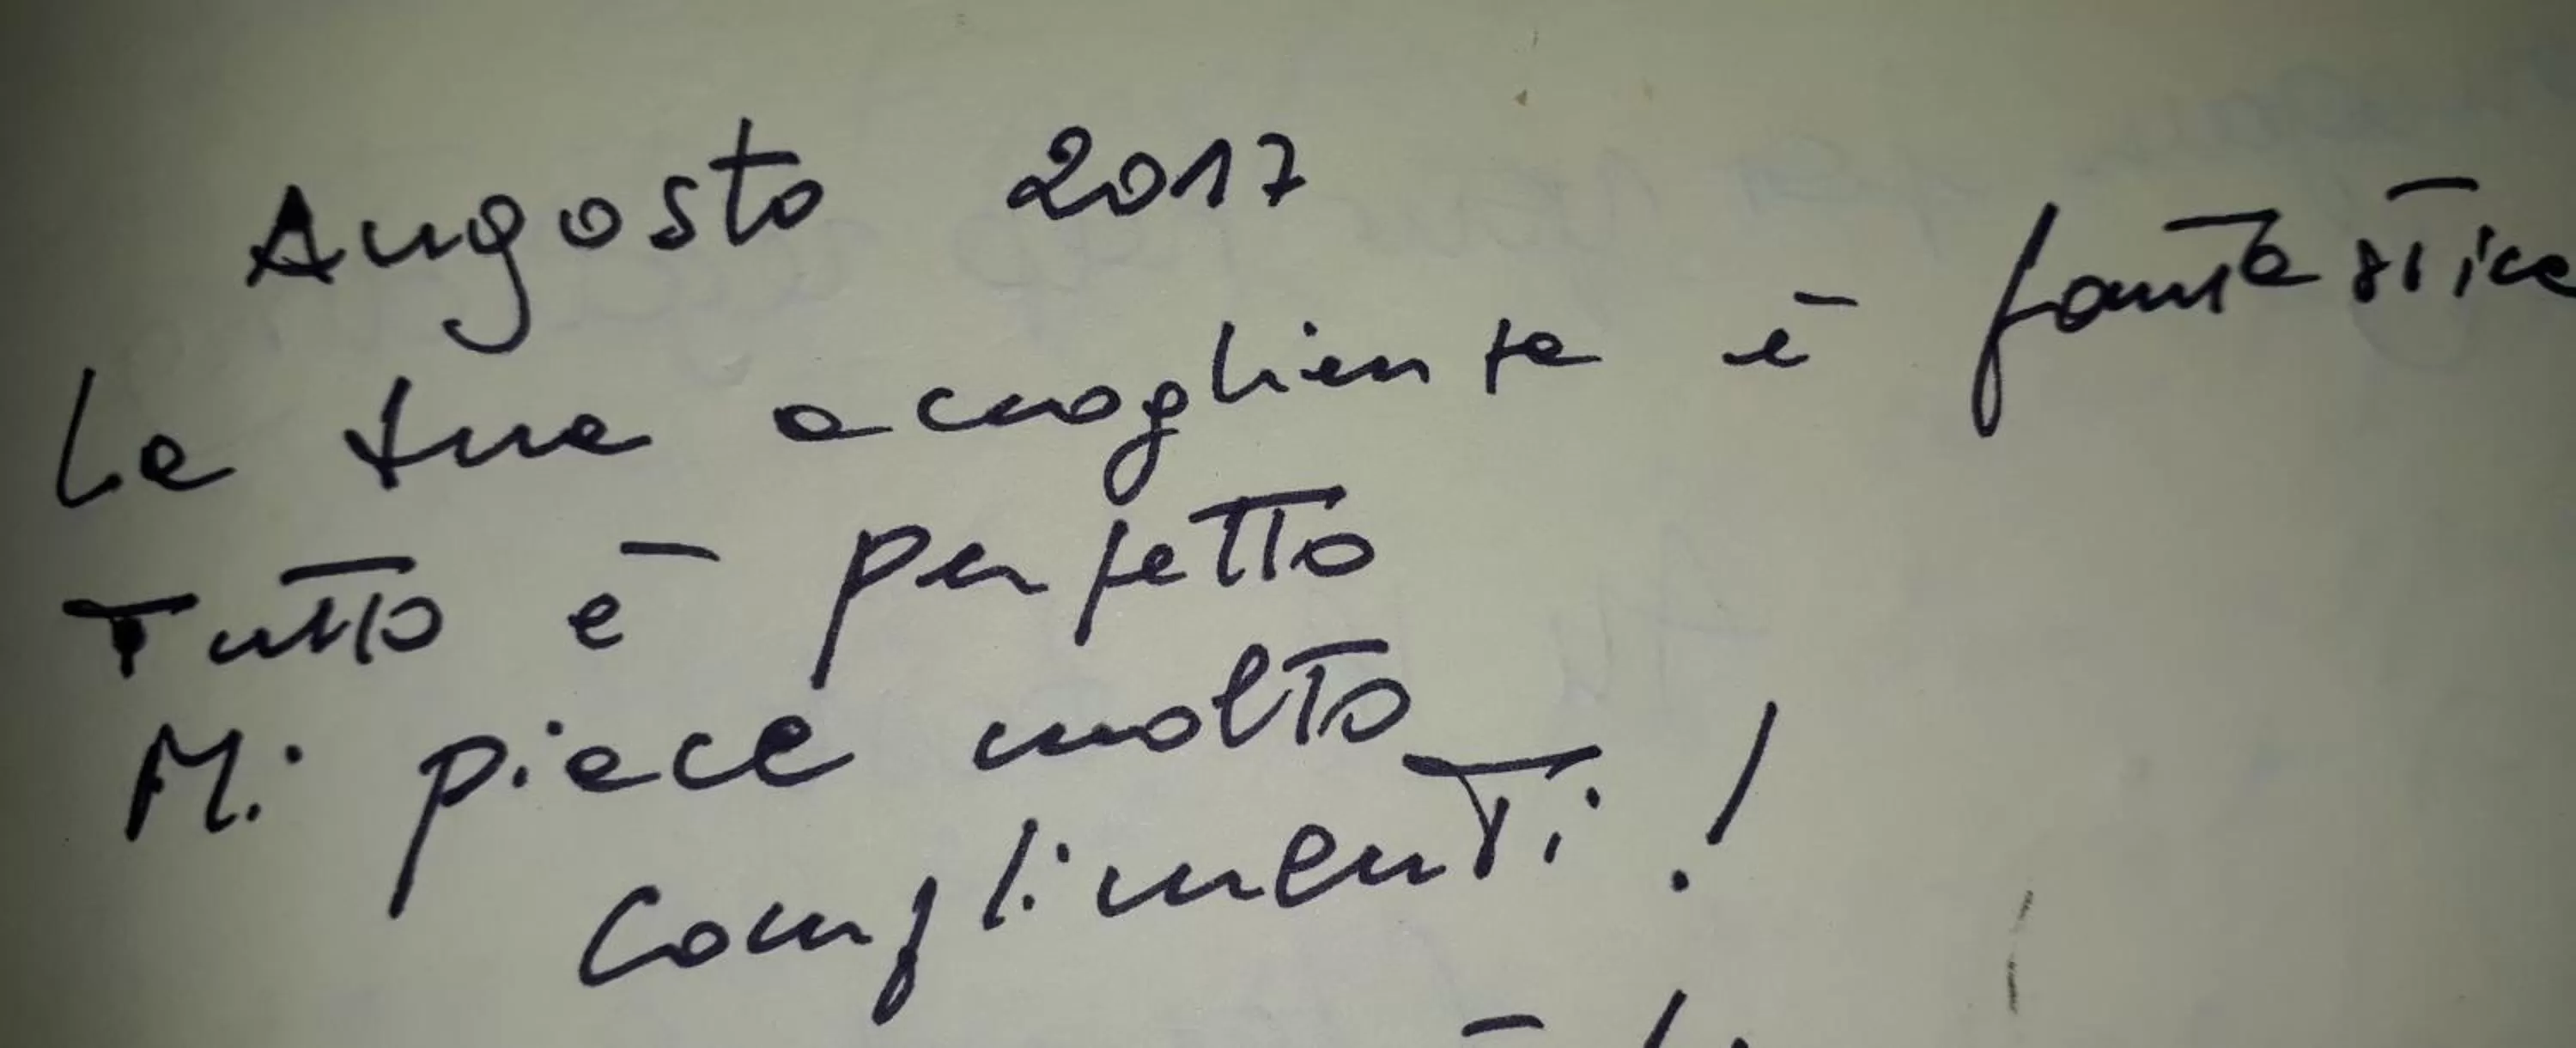 Augosto 2017
La tua accogliente è fantastica
Tutto è perfetto
Mi piace molto
Complimenti!